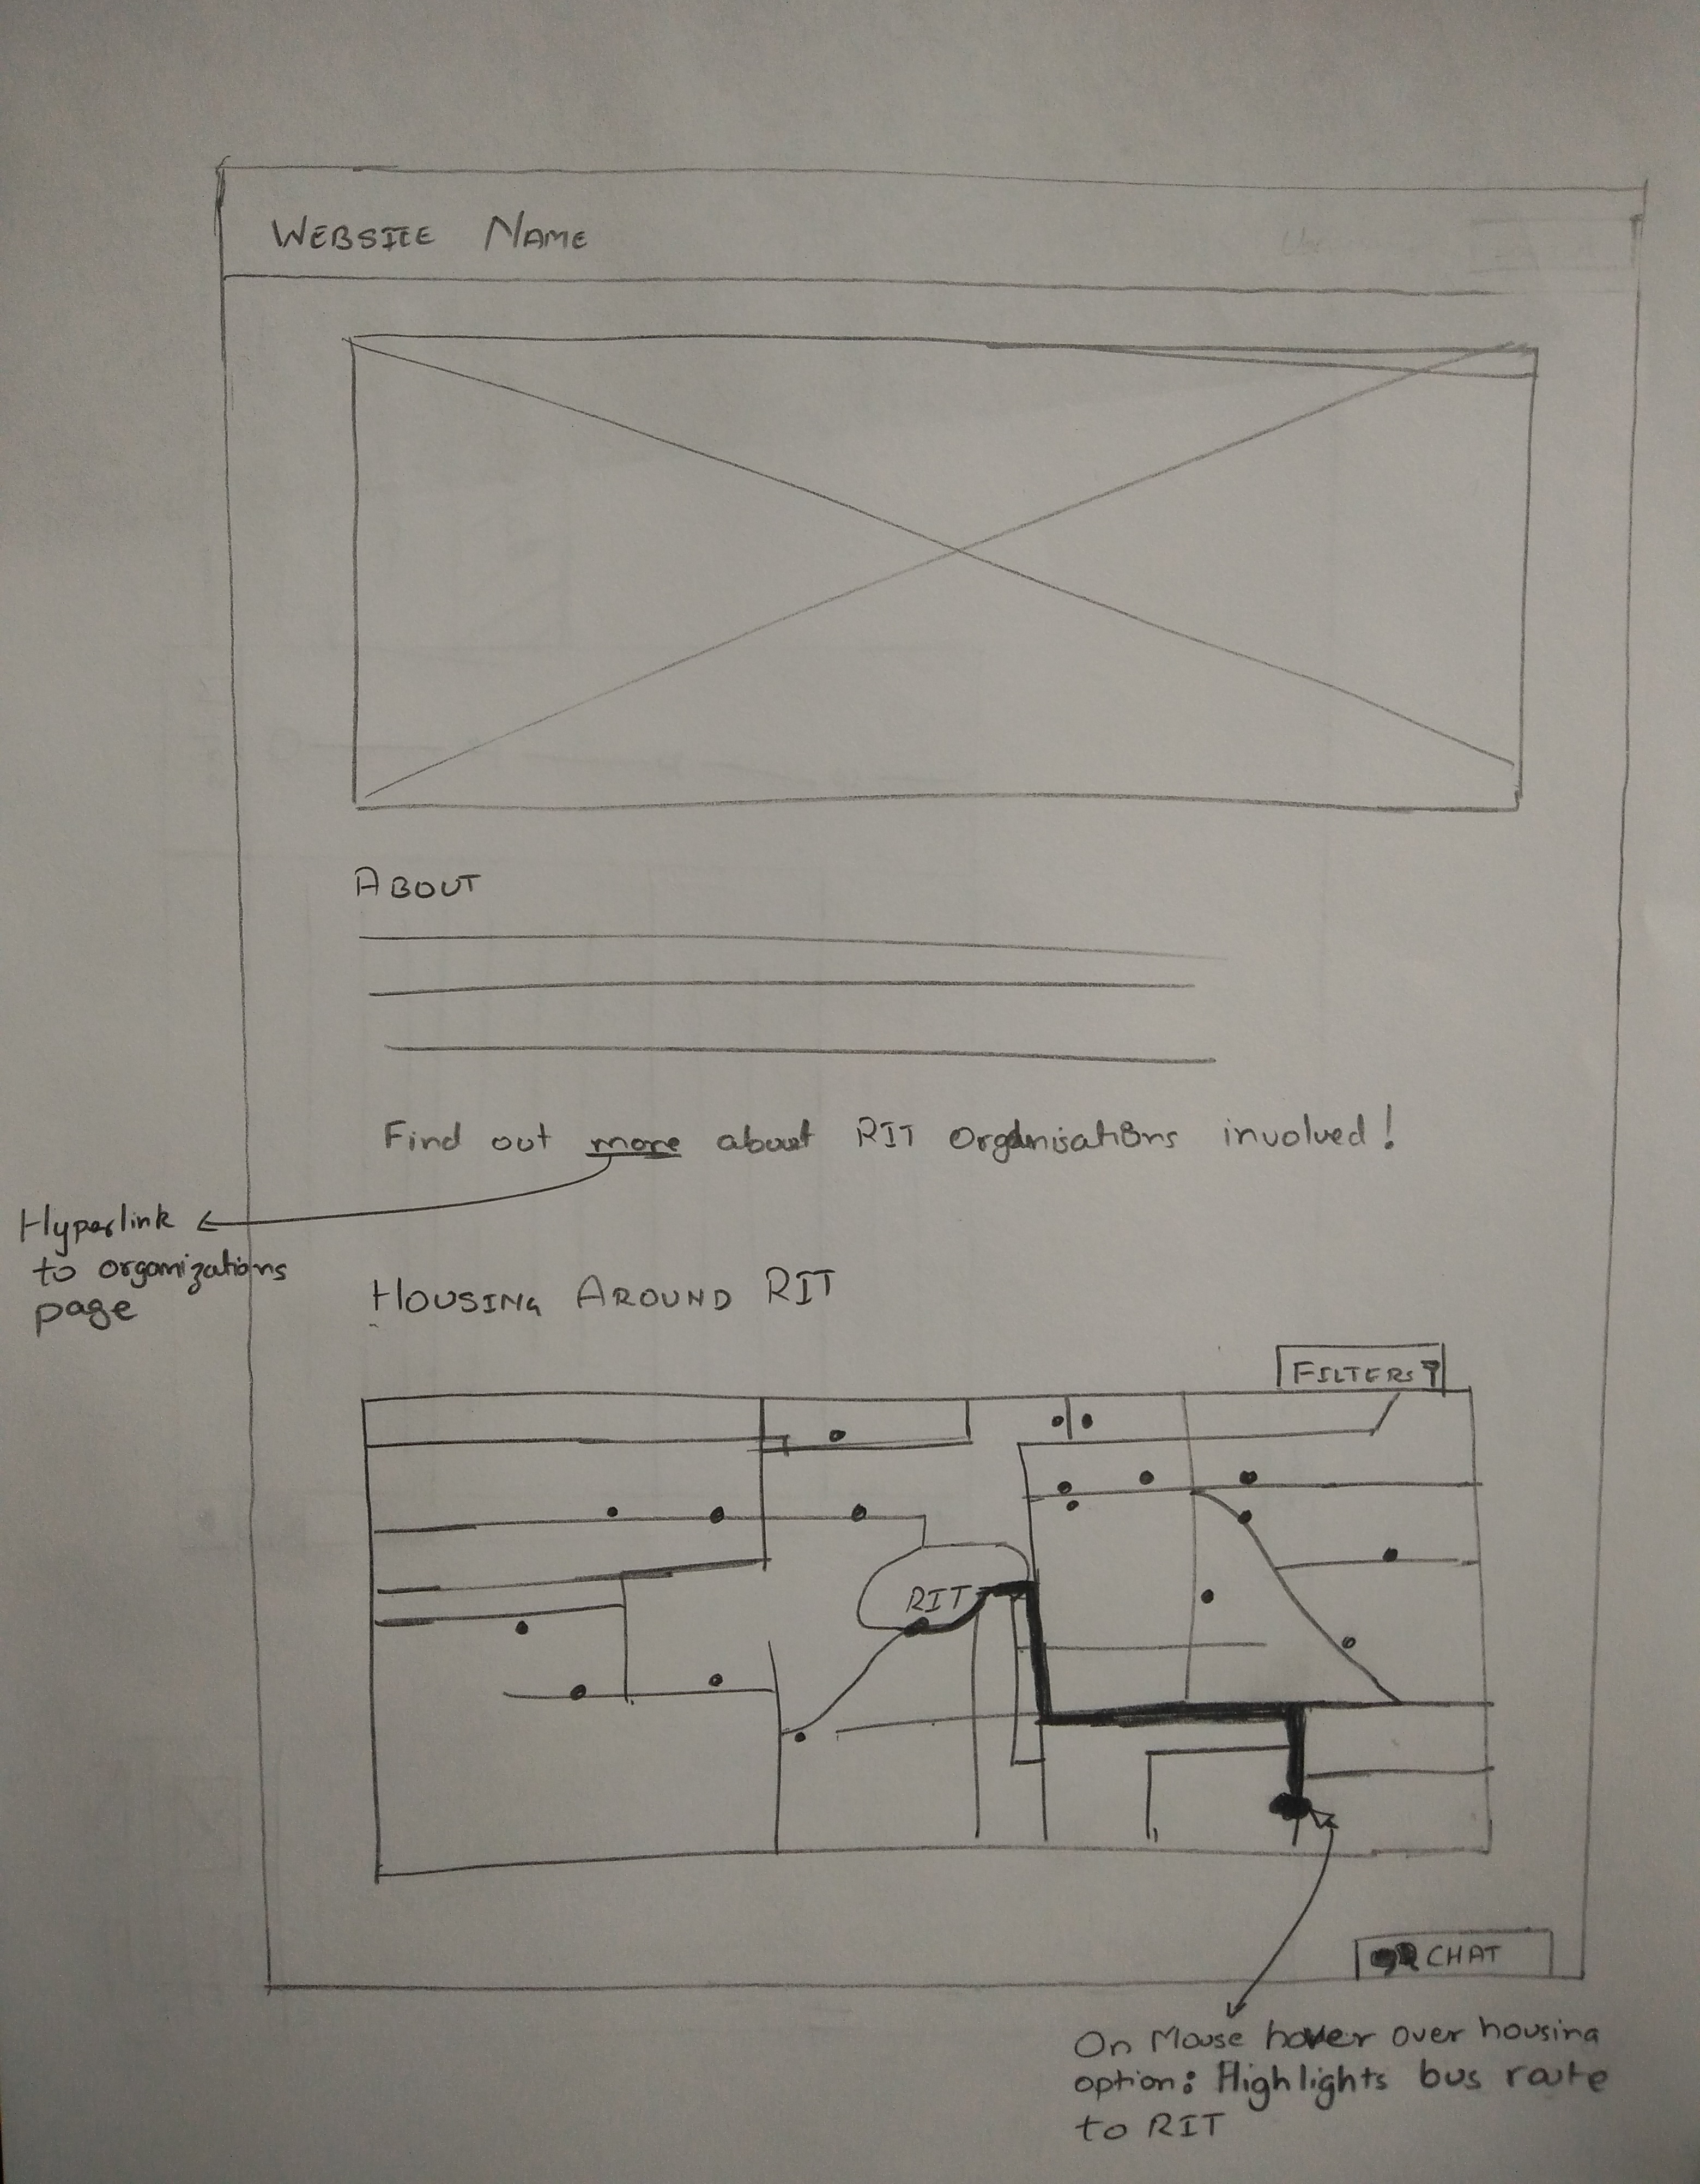 WEBSITE NAME
ABOUT
Find out more about RIT Organisations involved!
Hyperlink
to organizations
page
HOUSING AROUND RIT
FILTERS
RIT
CHAT
On Mouse hover over housing
option: Highlights bus route
to RIT